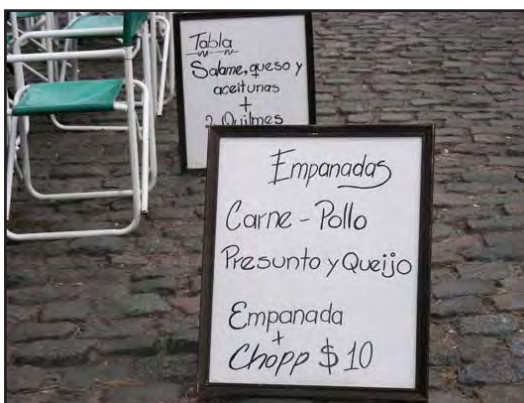 Tabla
Salame, queso y
aceitunas
+
2 Quilmes
Empanadas
Carne - Pollo
Presunto y Queijo
Empanada
+
Chopp $10